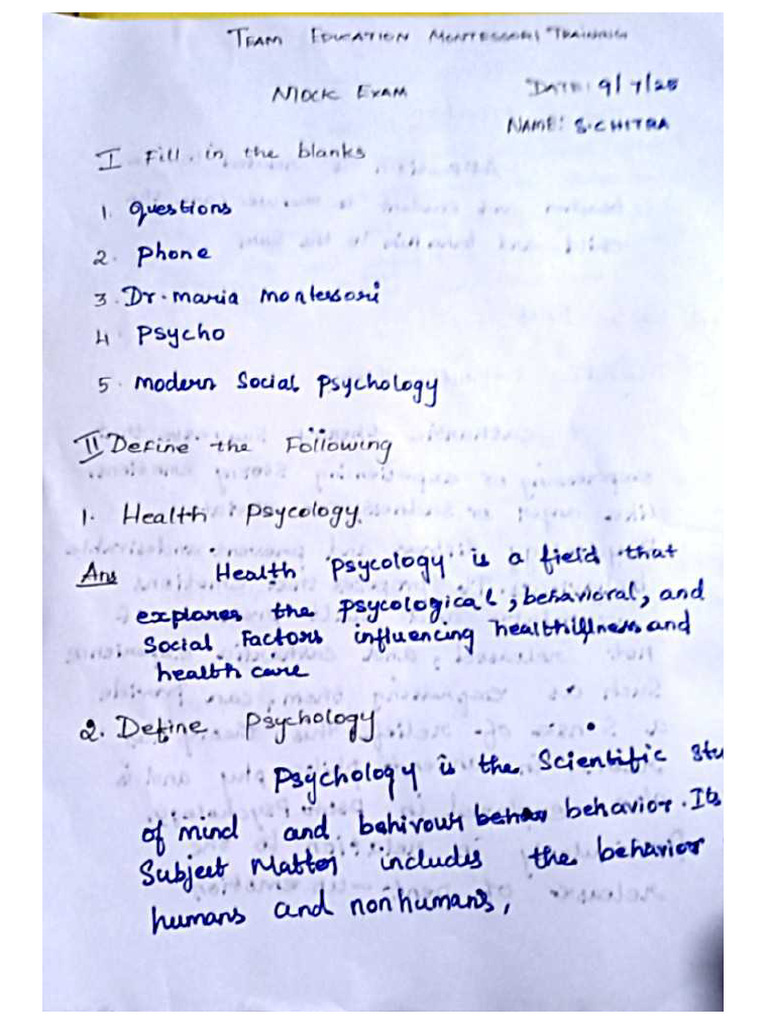 TEAM EDUCATION MONTESSORI TRAINING
MOCK EXAM
DATE: 9/7/25
NAME: S.CHITRA
I Fill in the blanks
1. questions
2. Phone
3. Dr. maria montessori
4. Psycho
5. modern Social psychology
II Define the Following
1. Health psycology.
Ans Health psycology is a field that
explanes the psycological, behavioral, and
Social Factors influencing health illness and
health care
2. Define Psychology
Psychology is the Scientific stu
of mind and behivour behav behavior. Its
Subject Matter includes the behavior
humans and nonhumans,